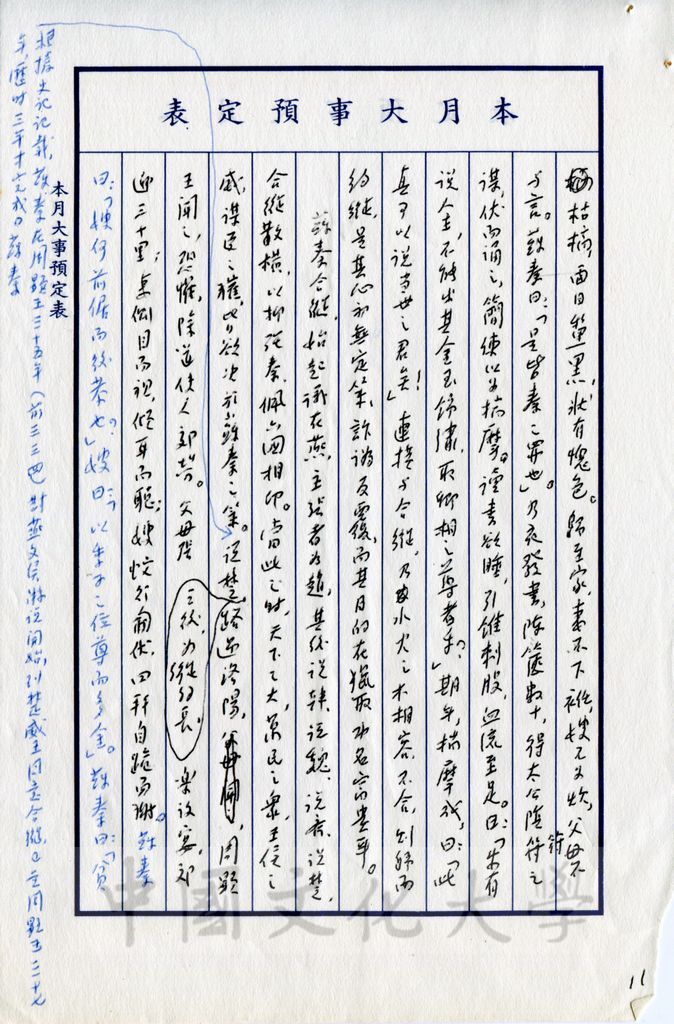 本月大事預定表
枯槁，面目黧黑，狀有愧色。歸至家，妻不下紝，嫂不為炊，父母不
與言。蘇秦曰：「是皆秦之罪也」。乃夜發書，陳篋數十，得太公陰符之
謀，伏而誦之，簡練以為揣摩。讀書欲睡，引錐刺股，血流至足。曰：「安有
說人主，不能出其金玉錦繡，取卿相之尊者乎？」期年，揣摩成，曰：「此
真可以說當世之君矣！」連橫與合縱，乃如水火之不相容，不合，則歸而
約縱，是其心初無定策，詐謀反覆，而其目的在獵取功名富貴耳。
蘇秦合縱，始起議在燕，主張者為趙，其後說韓、說魏、說齊、說楚，
合縱散橫，以抑強秦，佩六國相印。當此之時，天下之大，萬民之眾，王侯之
威，謀臣之權，皆欲決於蘇秦之策。說楚，路過洛陽，周顯
王聞之，恐懼，除道使人郊勞。父母張
之後，為縱約長。
樂設宴，郊
迎三十里；妻側目而視，傾耳而聽；嫂蛇行匍伏，四拜自跪而謝。蘇秦
曰：「嫂何前倨而後恭也？」嫂曰：「以季子之位尊而多金」。蘇秦曰：「貧
本月大事預定表
根據史記記載，蘇秦在周顯王三十五年（前三三四）對燕文侯游說開始，到楚威王同意合縱，是周顯王三十七
年，歷時三年才完成。蘇秦
11
中國文化大學